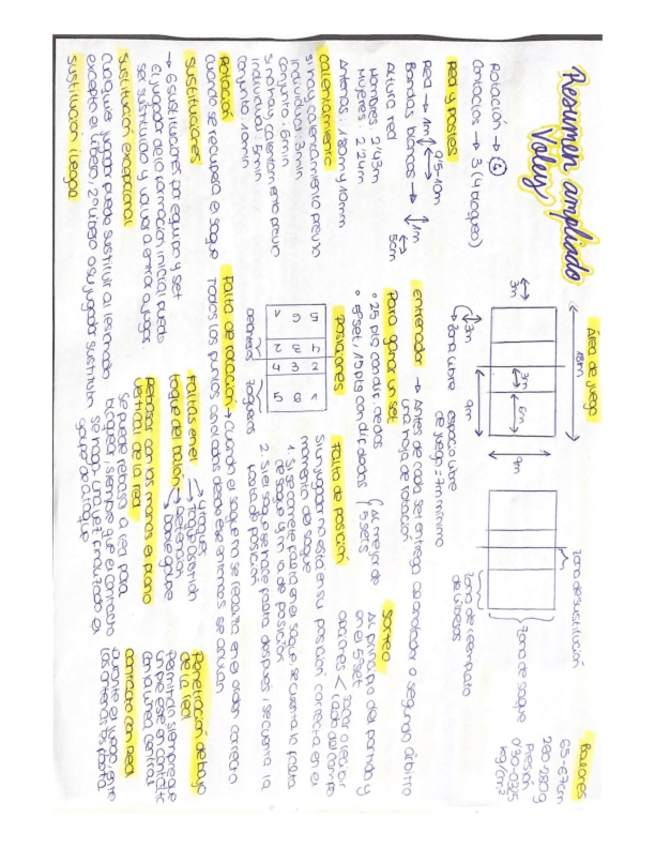 Resumen ampliado
Voley
Rotación → 6
Contactos → 3 (4 bloqueo)
Red y postes
Red → 1m 9'5-10m
Bandas blancas → 1m
5cm
Altura red
Hombres: 2'43m
Mujeres: 2'24m
Antenas: 1'80m y 10mm
Calentamiento
Si hay calentamiento previo
individual: 3min
conjunto: 6min
Si no hay calentamiento previo
individual: 5min
conjunto: 10min
Rotación
Cuando se recupera el saque
Sustituciones
→ 6 sustituciones por equipo y set
El jugador de la formación inicial puede
ser sustituido y volver a entrar a jugar.
Sustitución excepcional
Cualquier jugador puede sustituir al lesionado
excepto el líbero, 2º líbero o su jugador sustituto
Sustitución ilegal
Área de juego
18m
3m
3m
6m
9m
9m
3m
zona libre
espacio libre
de juego: 7m mínimo
zona de sustitución
zona de saque
zona de reemplazo
de líberos
Balones
65-67cm
260-280g
Presión
0'30-0'325
kg/cm²
entrenador → Antes de cada set entrega al anotador o segundo árbitro
una hoja de rotación
Para ganar un set
• 25 pts con dif. de dos
• 5º set, 15 pts con dif. de dos
Al mejor de
5 sets
Sorteo
Al principio del partido y
en el 5º set
opciones < sacar o recibir
lado del campo
Posiciones
5 6 1
4 3 2
2 3 4
1 6 5
delanteros
zagueros
Falta de posición
Si un jugador no está en su posición correcta en el
momento de saque
1. Si se comete falta en el saque, se cuenta la falta
de saque y no la de posición
2. Si el saque se hace falta después, se cuenta la
falta de posición
Falta de rotación → cuando el saque no se realiza en el orden correcto
Todos los puntos anotados desde ese entonces se anulan
Faltas en el
toque del balón
→ 4 toques
→ Toque asistido
→ Retención
→ Doble golpe
Rebasar con las manos el plano
vertical de la red
Se puede rebasar la red para
bloquear, siempre que el contacto
se haga una vez finalizado el
golpe de ataque
Penetración debajo
de la red
Permitida siempre que
un pie esté en contacto
con la línea central
Contacto con Red
durante el juego entre
las antenas, es falta